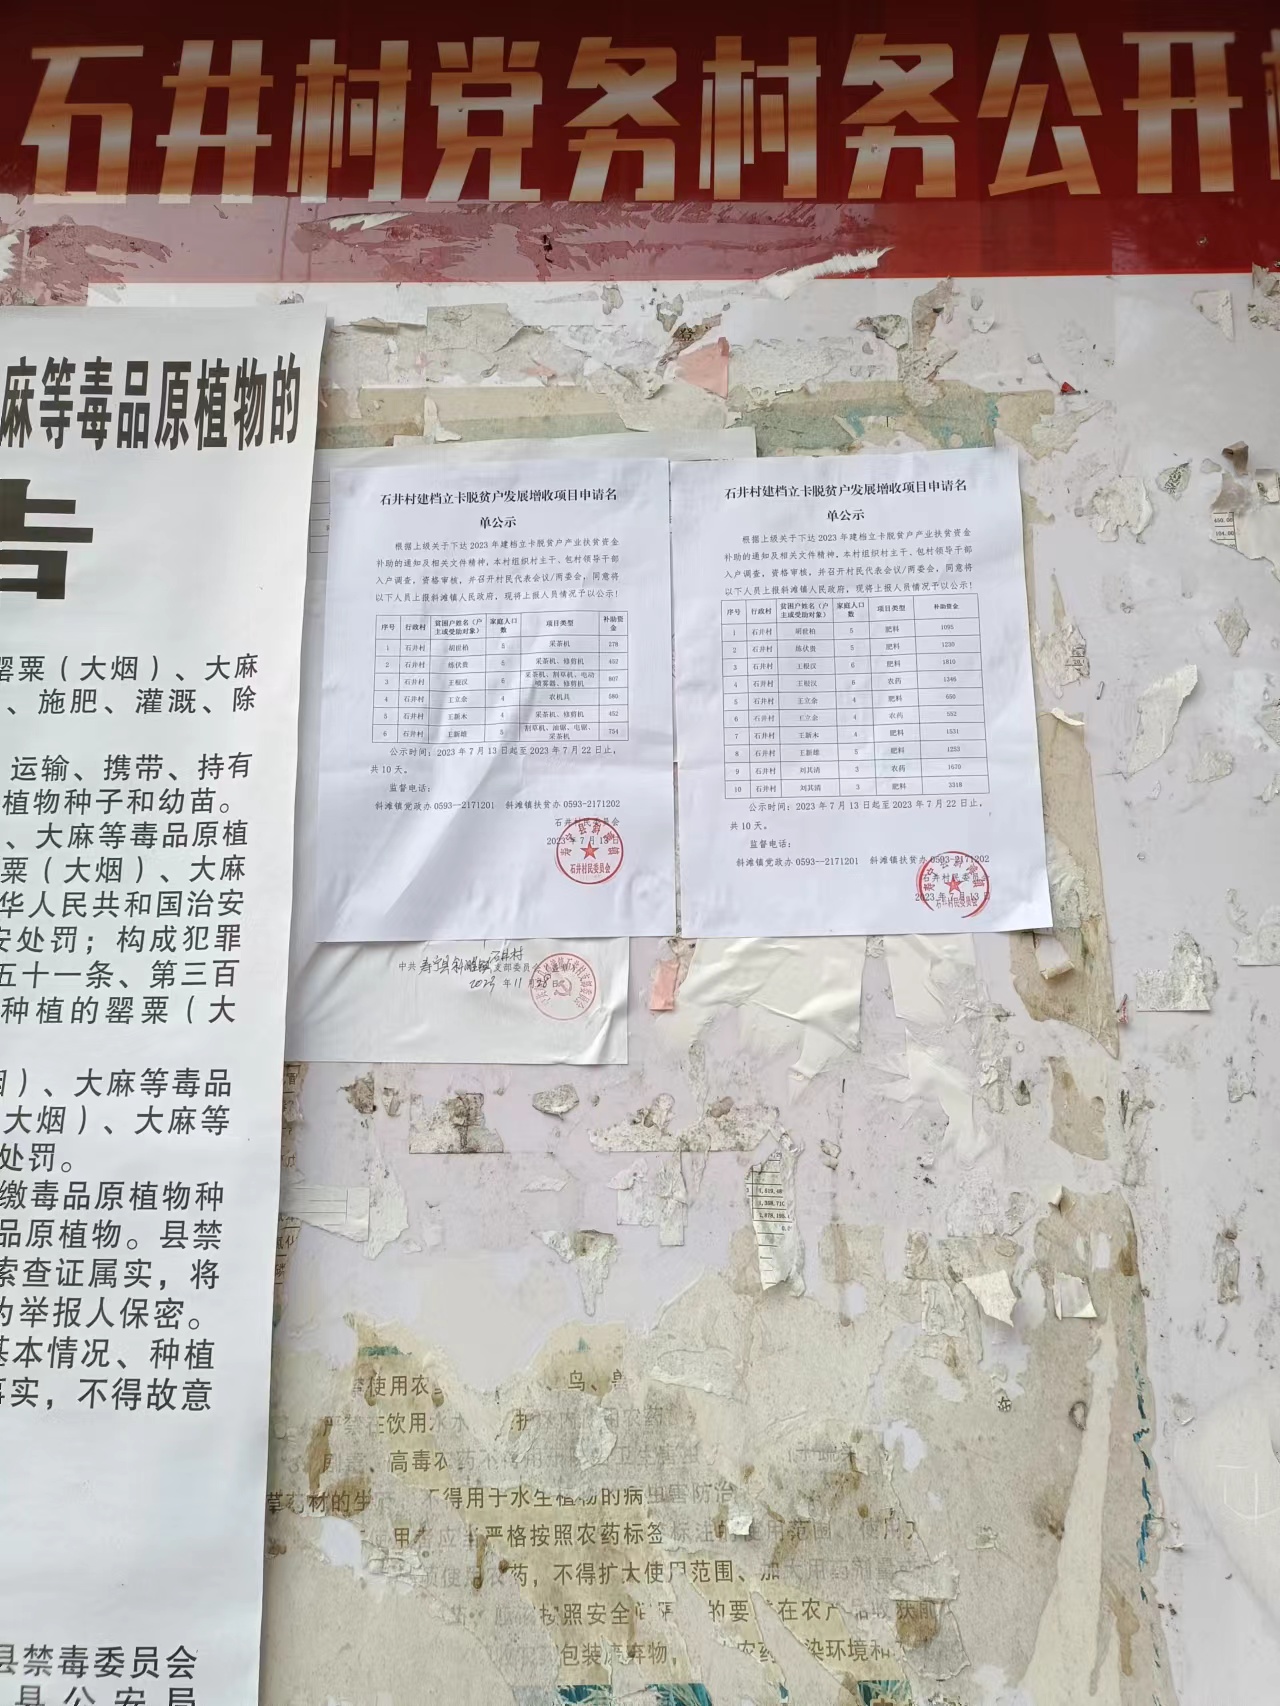 石井村党务村务公开
麻等毒品原植物的
告
罂粟（大烟）、大麻
、施肥、灌溉、除
运输、携带、持有
植物种子和幼苗。
、大麻等毒品原植
粟（大烟）、大麻
华人民共和国治安
安处罚；构成犯罪
五十一条、第三百
种植的罂粟（大
）、大麻等毒品
大烟）、大麻等
处罚。
缴毒品原植物种
品原植物。县禁
索查证属实，将
为举报人保密。
基本情况、种植
事实，不得故意
县禁毒委员会
县公安局
石井村建档立卡脱贫户发展增收项目申请名
单公示
根据上级关于下达2023年建档立卡脱贫户产业扶贫资金
补助的通知及相关文件精神，本村组织村主干、包村领导干部
入户调查，资格审核，并召开村民代表会议/两委会，同意将
以下人员上报斜滩镇人民政府，现将上报人员情况予以公示！
序号 行政村 贫困户姓名（户主或受助对象） 家庭人口数 项目类型 补助资金
1 石井村 胡世柏 5 采茶机 278
2 石井村 练伏贵 5 采茶机、修剪机 452
3 石井村 王根汉 6 采茶机、割草机、电动喷雾器、修剪机 807
4 石井村 王立余 4 农机具 586
5 石井村 王新木 4 采茶机、修剪机 452
6 石井村 王新雄 5 割草机、油锯、电锯、采茶机 754
公示时间：2023年7月13日起至2023年7月22日止，
共10天。
监督电话：
斜滩镇党政办 0593--2171201 斜滩镇扶贫办 0593-2171202
石井村民委员会
2023年7月13日
石井村民委员会
石井村建档立卡脱贫户发展增收项目申请名
单公示
根据上级关于下达2023年建档立卡脱贫户产业扶贫资金
补助的通知及相关文件精神，本村组织村主干、包村领导干部
入户调查，资格审核，并召开村民代表会议/两委会，同意将
以下人员上报斜滩镇人民政府，现将上报人员情况予以公示！
序号 行政村 贫困户姓名（户主或受助对象） 家庭人口数 项目类型 补助资金
1 石井村 胡世柏 5 肥料 1095
2 石井村 练伏贵 5 肥料 1230
3 石井村 王根汉 6 肥料 1810
4 石井村 王根汉 6 农药 1346
5 石井村 王立余 4 肥料 650
6 石井村 王立余 4 农药 552
7 石井村 王新木 4 肥料 1531
8 石井村 王新雄 5 肥料 1253
9 石井村 刘其清 3 农药 1670
10 石井村 刘其清 3 肥料 3318
公示时间：2023年7月13日起至2023年7月22日止，
共10天。
监督电话：
斜滩镇党政办 0593--2171201 斜滩镇扶贫办 0593-2171202
石井村民委员会
2023年7月13日
石井村民委员会
中共寿宁县斜滩镇石井村支部委员会
2023年11月25日
使用农 鸟、
严禁在饮用水水 农药
、高毒农药不得用于
草药材的生 不得用于水生植物的病虫害防治
使用者应当严格按照农药标签标注的使用范围、使用
使用农药，不得扩大使用范围、加大用药剂量
按照安全间隔 的要 在农产品收获前
包装废弃物， 农药 染环境和